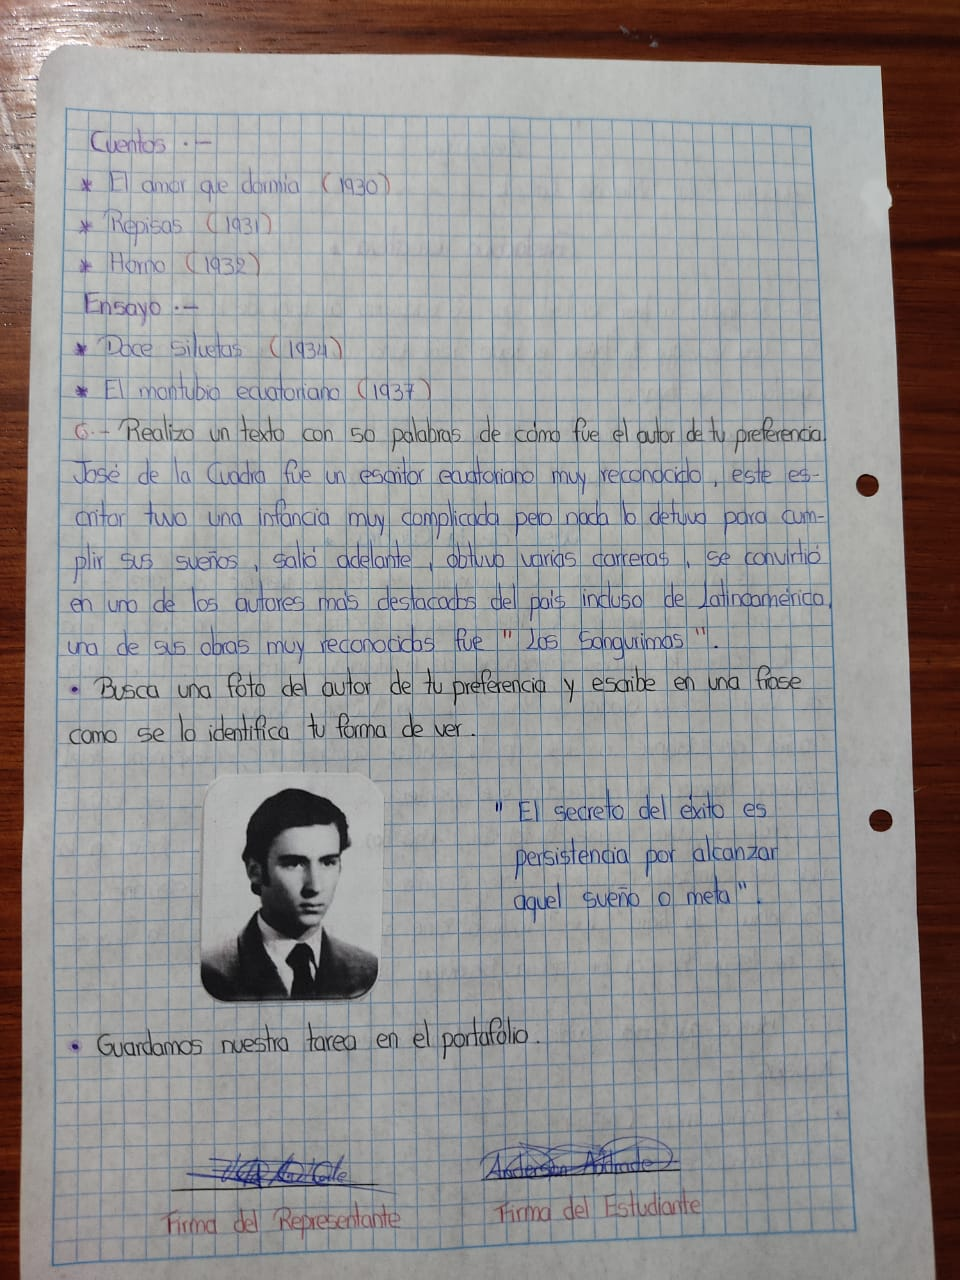 Cuentos .-
* El amor que dormia (1930)
* Repisas (1931)
* Horno (1932)
Ensayo .-
* Doce siluetas (1934)
* El montubio ecuatoriano (1937)
6.- Realizo un texto con 50 palabras de cómo fue el autor de tu preferencia.
José de la Cuadra fue un escritor ecuatoriano muy reconocido, este es-
critor tuvo una infancia muy complicada pero nada lo detuvo para cum-
plir sus sueños, salió adelante, obtuvo varias carreras, se convirtió
en uno de los autores más destacados del país incluso de Latinoamérica,
una de sus obras muy reconocidas fue "Los Sangurimas".
• Busca una foto del autor de tu preferencia y escribe en una frase
como se lo identifica tu forma de ver.
"El secreto del éxito es
persistencia por alcanzar
aquel sueño o meta".
• Guardamos nuestra tarea en el portafolio.
Anderson Andrade
Firma del Representante
Firma del Estudiante